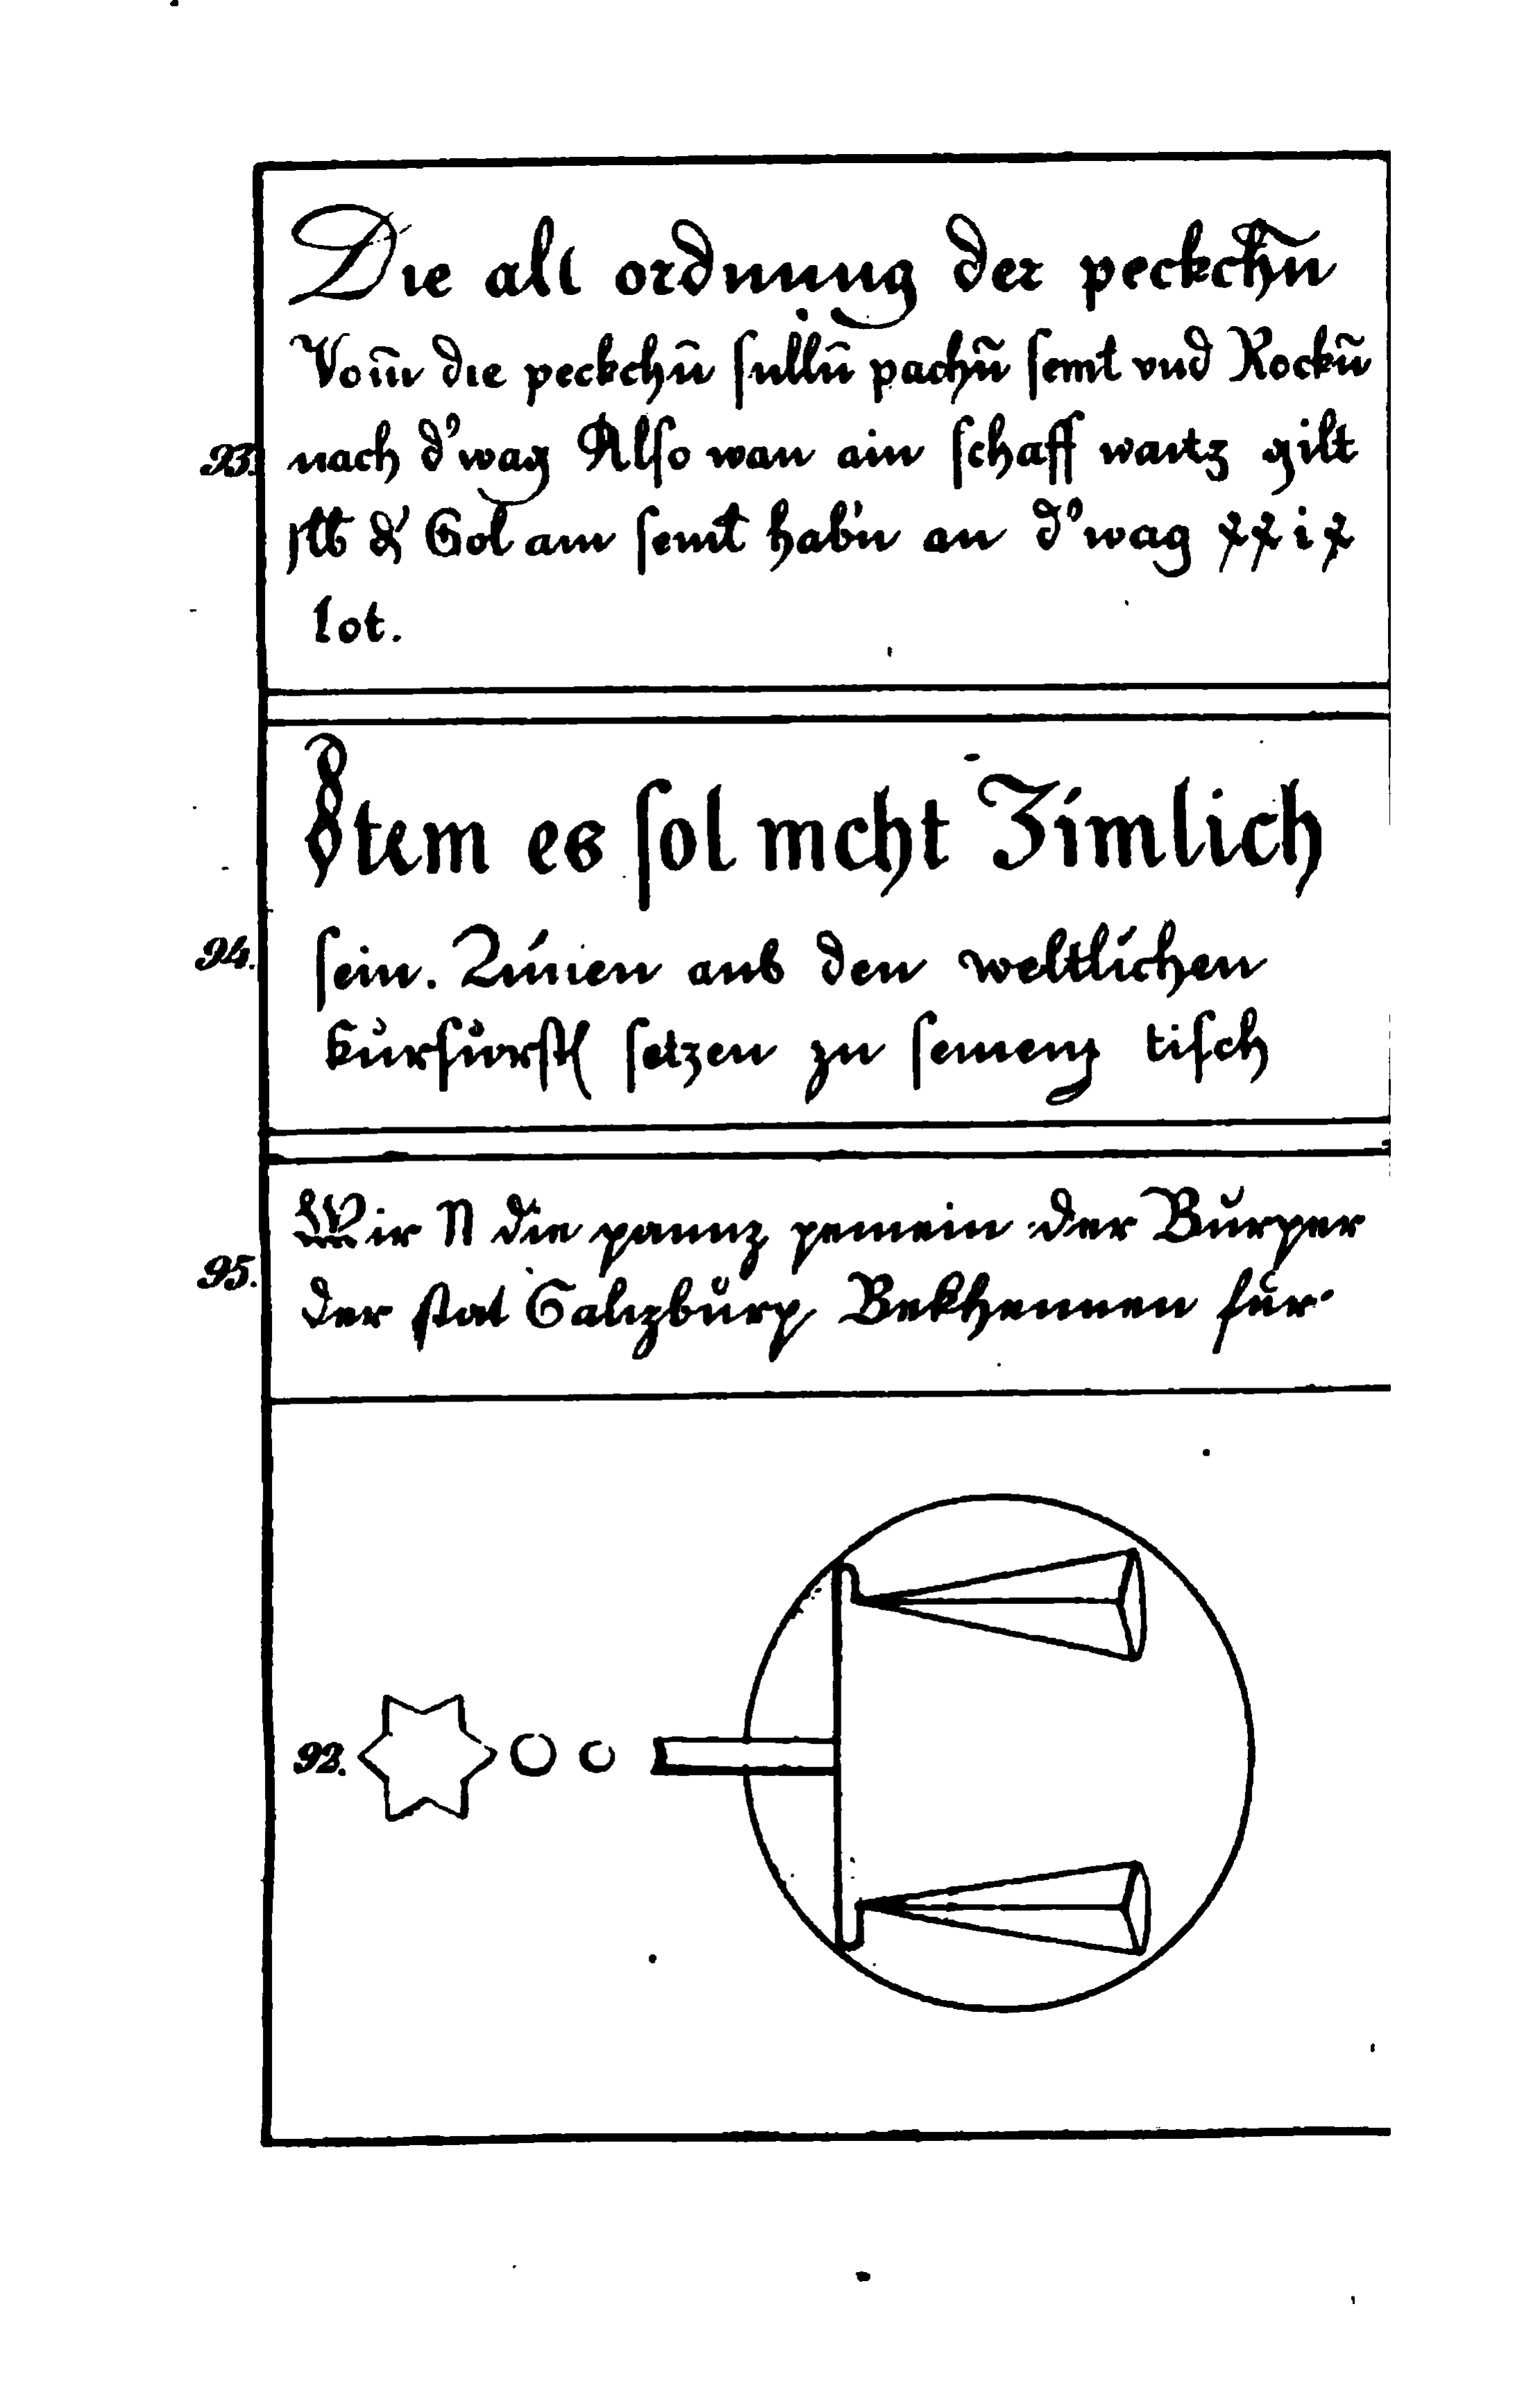 Die alt ordnung der peckchn̄
Vom̄ die peckchn̄ ſulln̄ pachn̄ ſeml vnd Rockn̄
93. nach d' wag Alſo wan ain ſchaff waitz gilt
Sol ain ſeml hab'n an d' wag xxix
lot.
Item es ſol nicht Zimlich
94. ſein. Ainen aus den weltlichen
kůrfůrſtl ſetzen zu ſeinem tiſch
95. Wir N die gannz gemein der Burger
der ſtat Salzbůrg Bekhennen fůr
92.